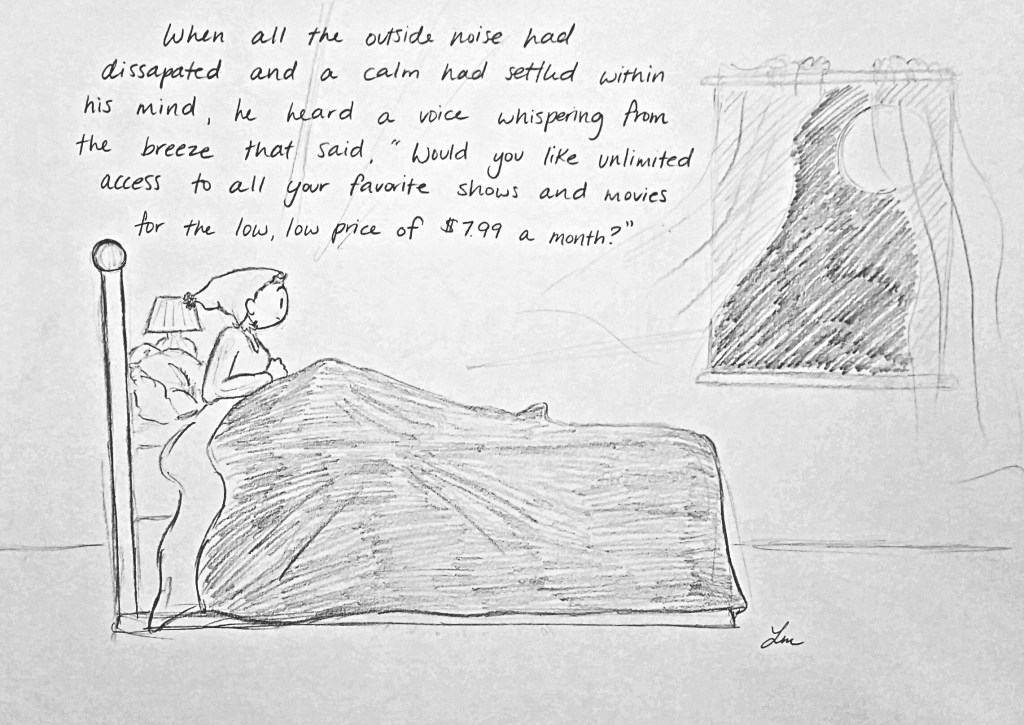 When all the outside noise had
dissapated and a calm had settled within
his mind, he heard a voice whispering from
the breeze that said, "Would you like unlimited
access to all your favorite shows and movies
for the low, low price of $7.99 a month?"